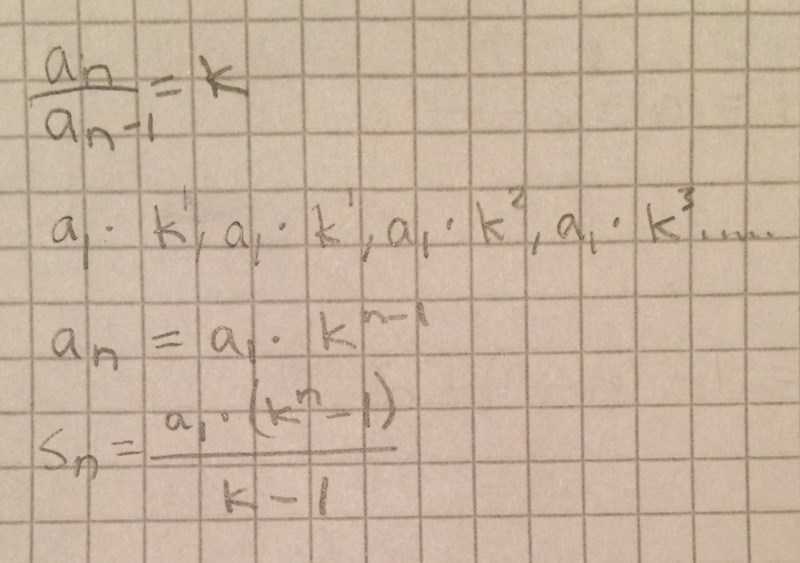 aₙ/aₙ₋₁ = k
a₁ · k¹, a₁ · k¹, a₁ · k², a₁ · k³.....
aₙ = a₁ · kⁿ⁻¹
Sₙ = a₁ · (kⁿ - 1)/k - 1